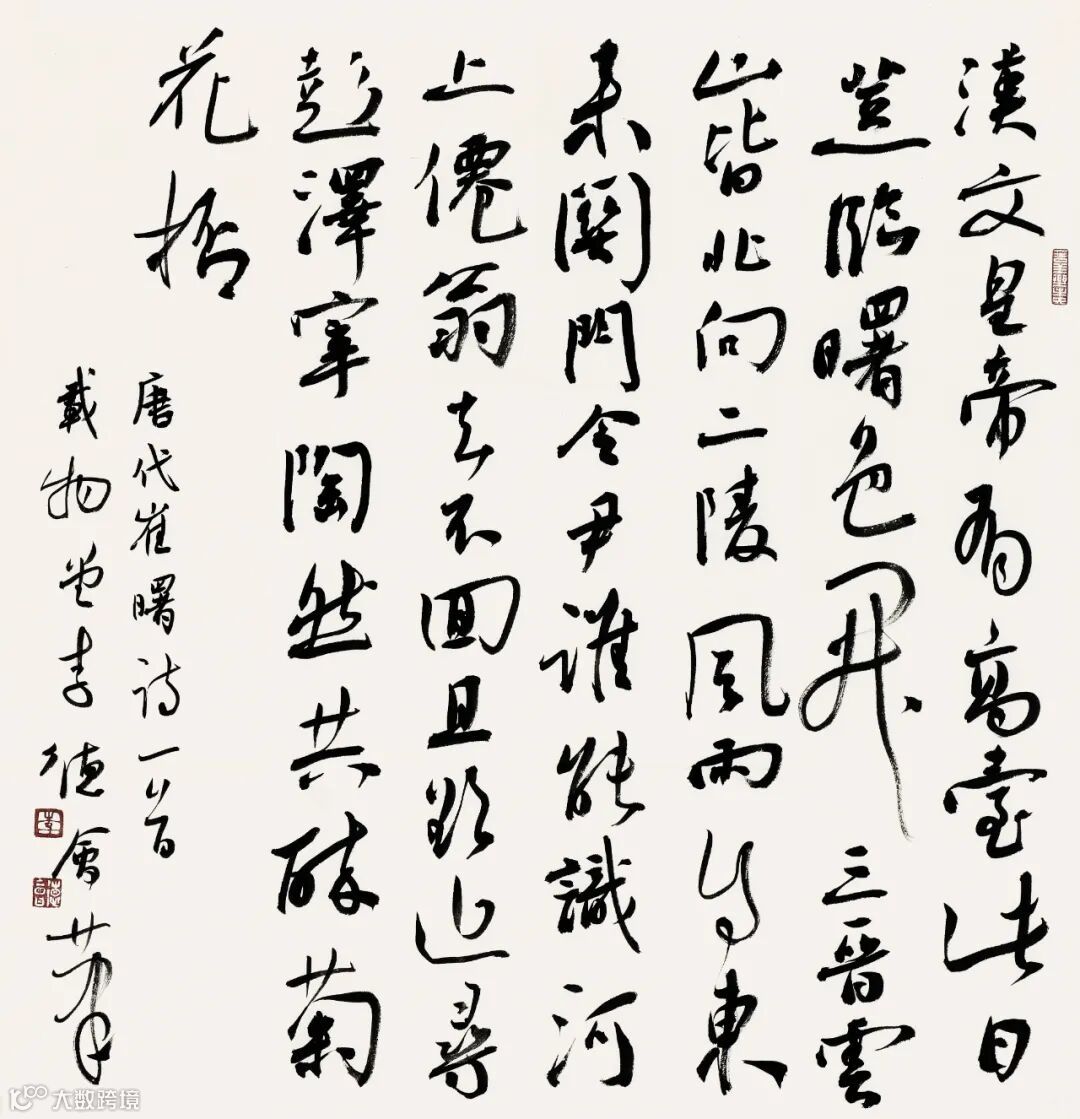 漢文皇帝有高臺此日
登臨曙色開三晉雲
山皆北向二陵風雨自東
來關門令尹誰能識河
上僊翁去不回且欲近尋
彭澤宰陶然共醉菊
花杯
唐代崔曙詩一首
載物堂李德會筆
李
大数跨境